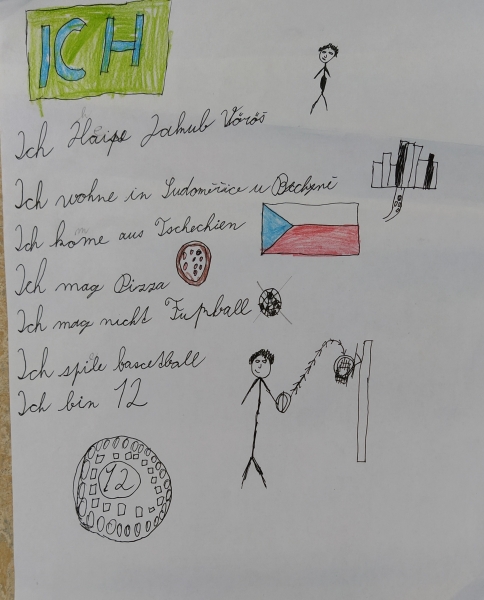 ICH
Ich Haipe Jakub Vörös
Ich wohne in Sudoměřice u Bechyně
Ich kome aus Tschechien
Ich mag Pizza
Ich mag nicht Fußball
Ich spile bascetball
Ich bin 12
12